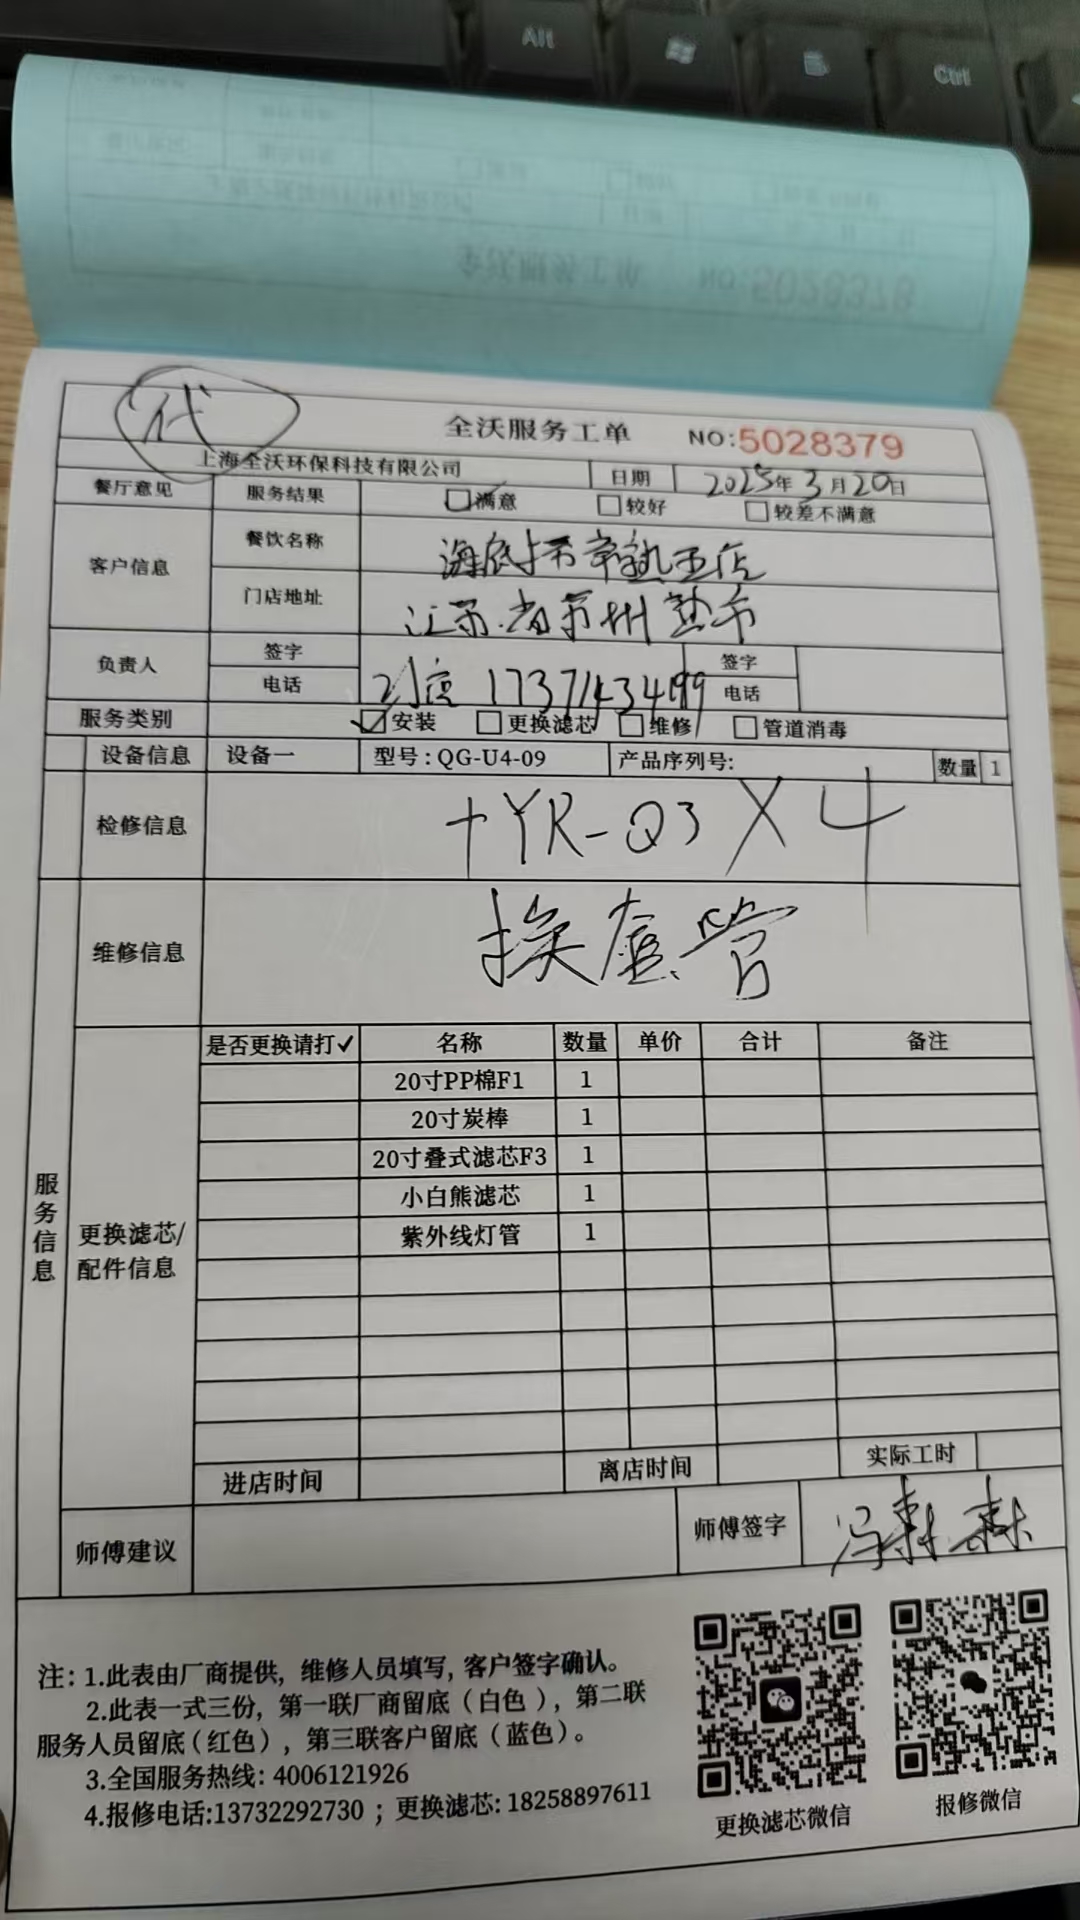 Alt
Ctrl
NO:5028378
代
全沃服务工单 NO:5028379
上海全沃环保科技有限公司 日期 2025年3月20日
餐厅意见 服务结果 满意 较好 较差不满意
客户信息 餐饮名称 海底捞常熟王店
门店地址 江苏省苏州熟市
负责人 签字 签字
电话 17371434199 电话
服务类别 安装 更换滤芯 维修 管道消毒
设备信息 设备一 型号:QG-U4-09 产品序列号: 数量 1
检修信息 +YR-Q3 X 4
维修信息 换 管
是否更换请打✓ 名称 数量 单价 合计 备注
20寸PP棉F1 1
20寸炭棒 1
20寸叠式滤芯F3 1
小白熊滤芯 1
紫外线灯管 1
服务信息
更换滤芯/
配件信息
进店时间 离店时间 实际工时
师傅建议 师傅签字 冯森森
注: 1.此表由厂商提供, 维修人员填写, 客户签字确认。
2.此表一式三份, 第一联厂商留底(白色), 第二联
服务人员留底(红色), 第三联客户留底(蓝色)。
3.全国服务热线: 4006121926
4.报修电话:13732292730 ; 更换滤芯: 18258897611
更换滤芯微信 报修微信